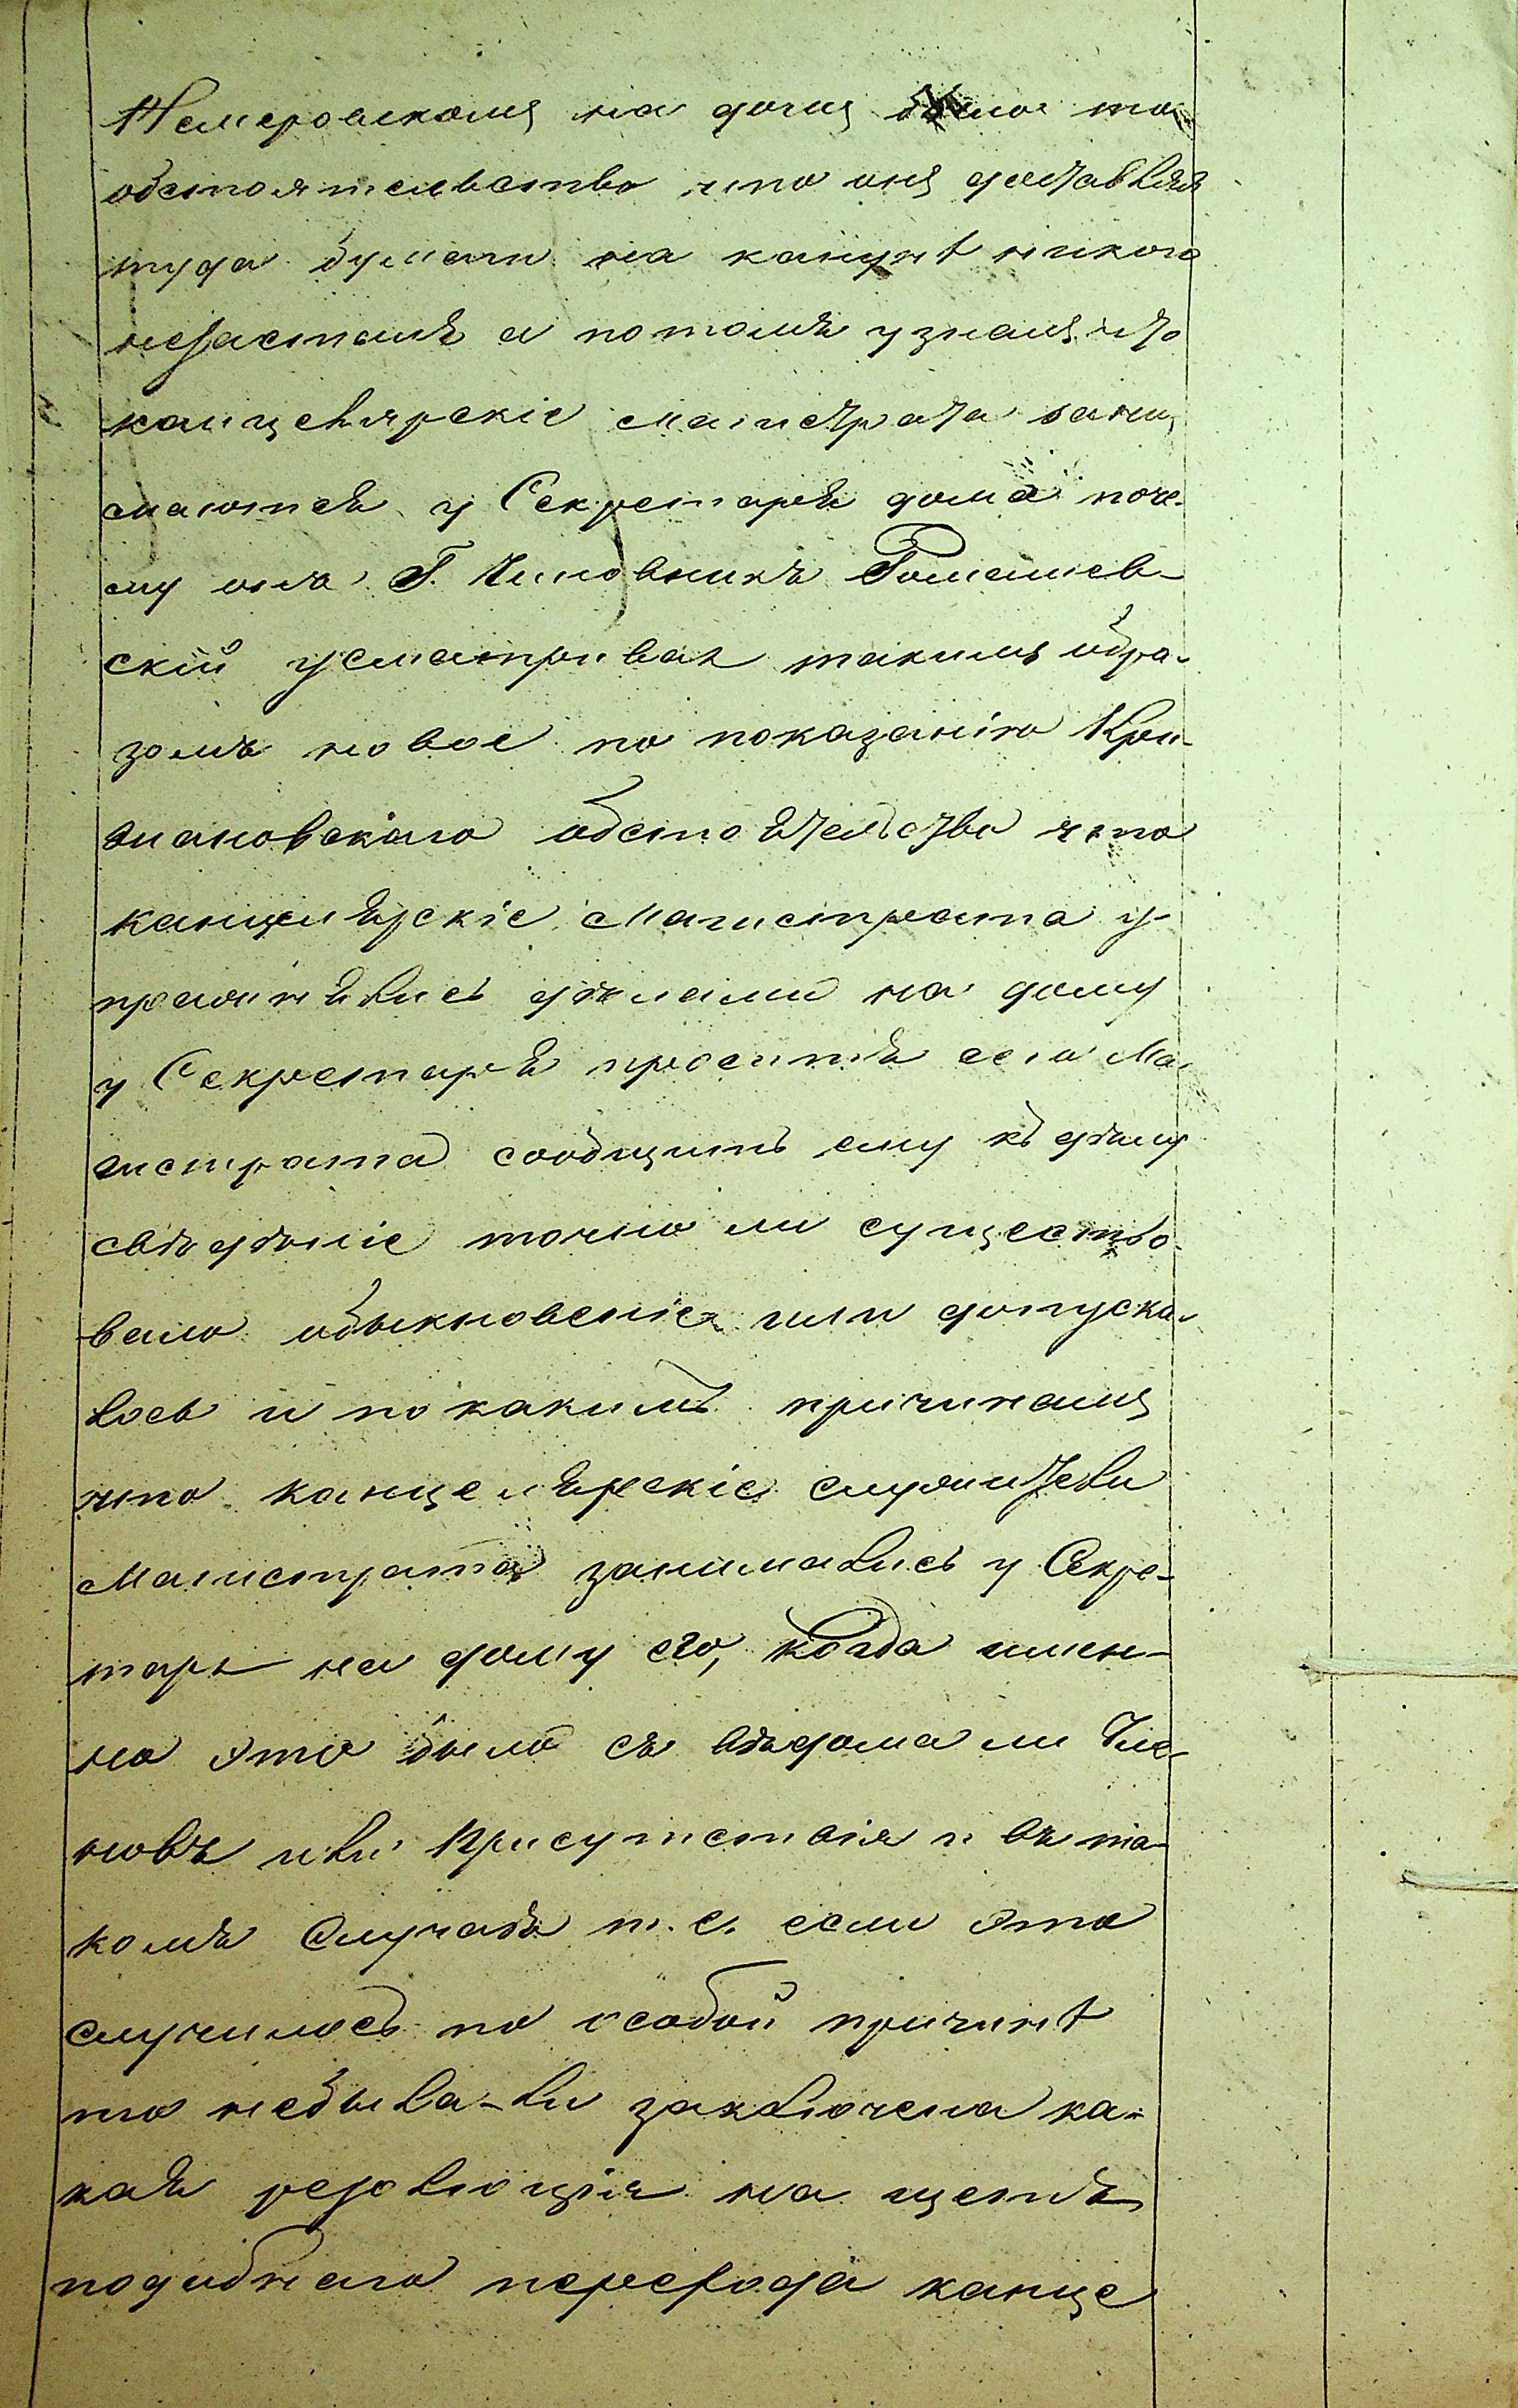 Немеровскомъ на домъ было то
обстоятельство что онъ доставляя
туда бумаги на канунѣ никого
незасталъ а потомъ узналъ что
канцелярскіе магистрата зани
маются у Секретаря дома поче-
му онъ Г. Чиновникъ
скій усматривая такимъ обра-
зомъ новое по показанію
обстоятельство что
канцелярскіе Магистрата у-
пражнялись дѣлами на дому
у Секретаря проситъ сего Ма-
гистрата сообщить ему къ дѣлу
свѣдѣніе точно ли существо-
вало обыкновеніе или допуска-
лось и по какимъ причинамъ
что канцелярскіе служители
Магистрата занимались у Секре-
таря на дому его, когда имен-
но это было съ вѣдома ли Чле-
новъ или Присутствія и въ та-
комъ Случаѣ т. е. если это
случилось по особой причинѣ
то небыла-ли заключена ка-
кая резолюція на щетъ
подобнаго перехода канце